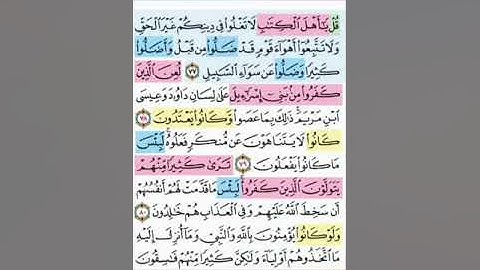 قُلْ يَٰٓأَهْلَ ٱلْكِتَٰبِ لَا تَغْلُوا۟ فِى دِينِكُمْ غَيْرَ ٱلْحَقِّ
وَلَا تَتَّبِعُوٓا۟ أَهْوَآءَ قَوْمٍ قَدْ ضَلُّوا۟ مِن قَبْلُ وَأَضَلُّوا۟
كَثِيرًا وَضَلُّوا۟ عَن سَوَآءِ ٱلسَّبِيلِ ٧٧ لُعِنَ ٱلَّذِينَ
كَفَرُوا۟ مِنۢ بَنِىٓ إِسْرَٰٓءِيلَ عَلَىٰ لِسَانِ دَاوُۥدَ وَعِيسَى
ٱبْنِ مَرْيَمَ ذَٰلِكَ بِمَا عَصَوا۟ وَّكَانُوا۟ يَعْتَدُونَ ٧٨
كَانُوا۟ لَا يَتَنَاهَوْنَ عَن مُّنكَرٍ فَعَلُوهُ لَبِئْسَ
مَا كَانُوا۟ يَفْعَلُونَ ٧٩ تَرَىٰ كَثِيرًا مِّنْهُمْ
يَتَوَلَّوْنَ ٱلَّذِينَ كَفَرُوا۟ لَبِئْسَ مَا قَدَّمَتْ لَهُمْ أَنفُسُهُمْ
أَن سَخِطَ ٱللَّهُ عَلَيْهِمْ وَفِى ٱلْعَذَابِ هُمْ خَٰلِدُونَ ٨٠
وَلَوْ كَانُوا۟ يُؤْمِنُونَ بِٱللَّهِ وَٱلنَّبِىِّ وَمَآ أُنزِلَ إِلَيْهِ
مَا ٱتَّخَذُوهُمْ أَوْلِيَآءَ وَلَٰكِنَّ كَثِيرًا مِّنْهُمْ فَٰسِقُونَ